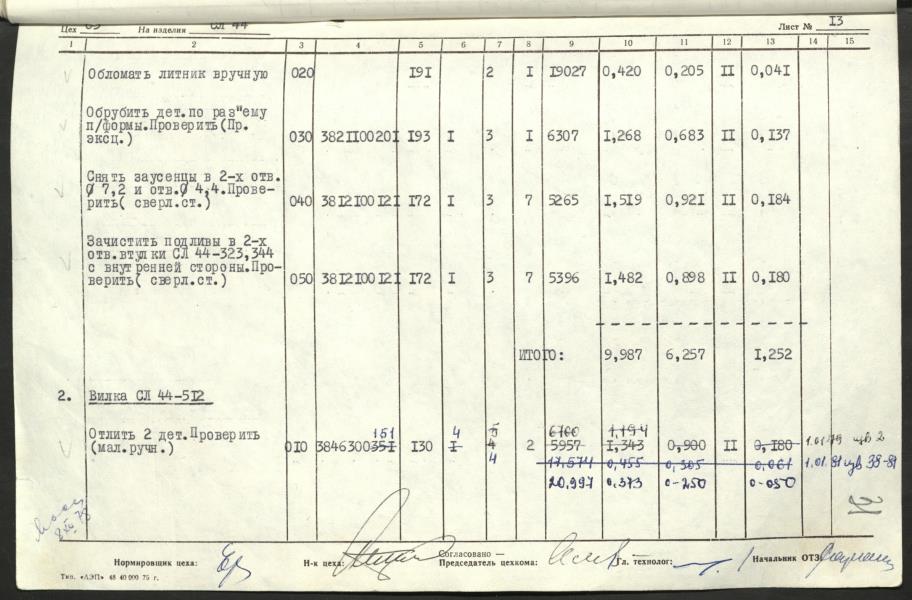 Цех 65 На изделия СЛ 44 Лист № 13
1 2 3 4 5 6 7 8 9 10 11 12 13 14 15
Обломать литник вручную 020 191 2 I 19027 0,420 0,205 II 0,041
Обрубить дет.по раз"ему
п/формы.Проверить(Пр.
эксц.) 030 3821100201 193 I 3 I 6307 1,268 0,683 II 0,137
Снять заусенцы в 2-х отв.
Ø 7,2 и отв.Ø 4,4.Прове-
рить( сверл.ст.) 040 3812100121 172 I 3 7 5265 1,519 0,921 II 0,184
Зачистить подливы в 2-х
отв.втулки СЛ 44-323,344
с внутренней стороны.Про-
верить( сверл.ст.) 050 3812100121 172 I 3 7 5396 1,482 0,898 II 0,180
ИТОГО: 9,987 6,257 1,252
2. Вилка СЛ 44-512
Отлить 2 дет.Проверить 151 4 5 6700 1,194
(мал.ручн.) 010 3846300351 130 I 4 2 5957 1,343 0,900 II 0,180 1.01.79 изв 2
4 17,574 0,455 0,305 0,061 1.01.81 изв 38-81
20,997 0.373 0-250 0-050
21
Согласовано —
Нормировщик цеха: Н-к цеха: Председатель цехкома: Гл. технолог: Начальник ОТЗ:
Тип. «АЭП» 48 40 000 75 г.